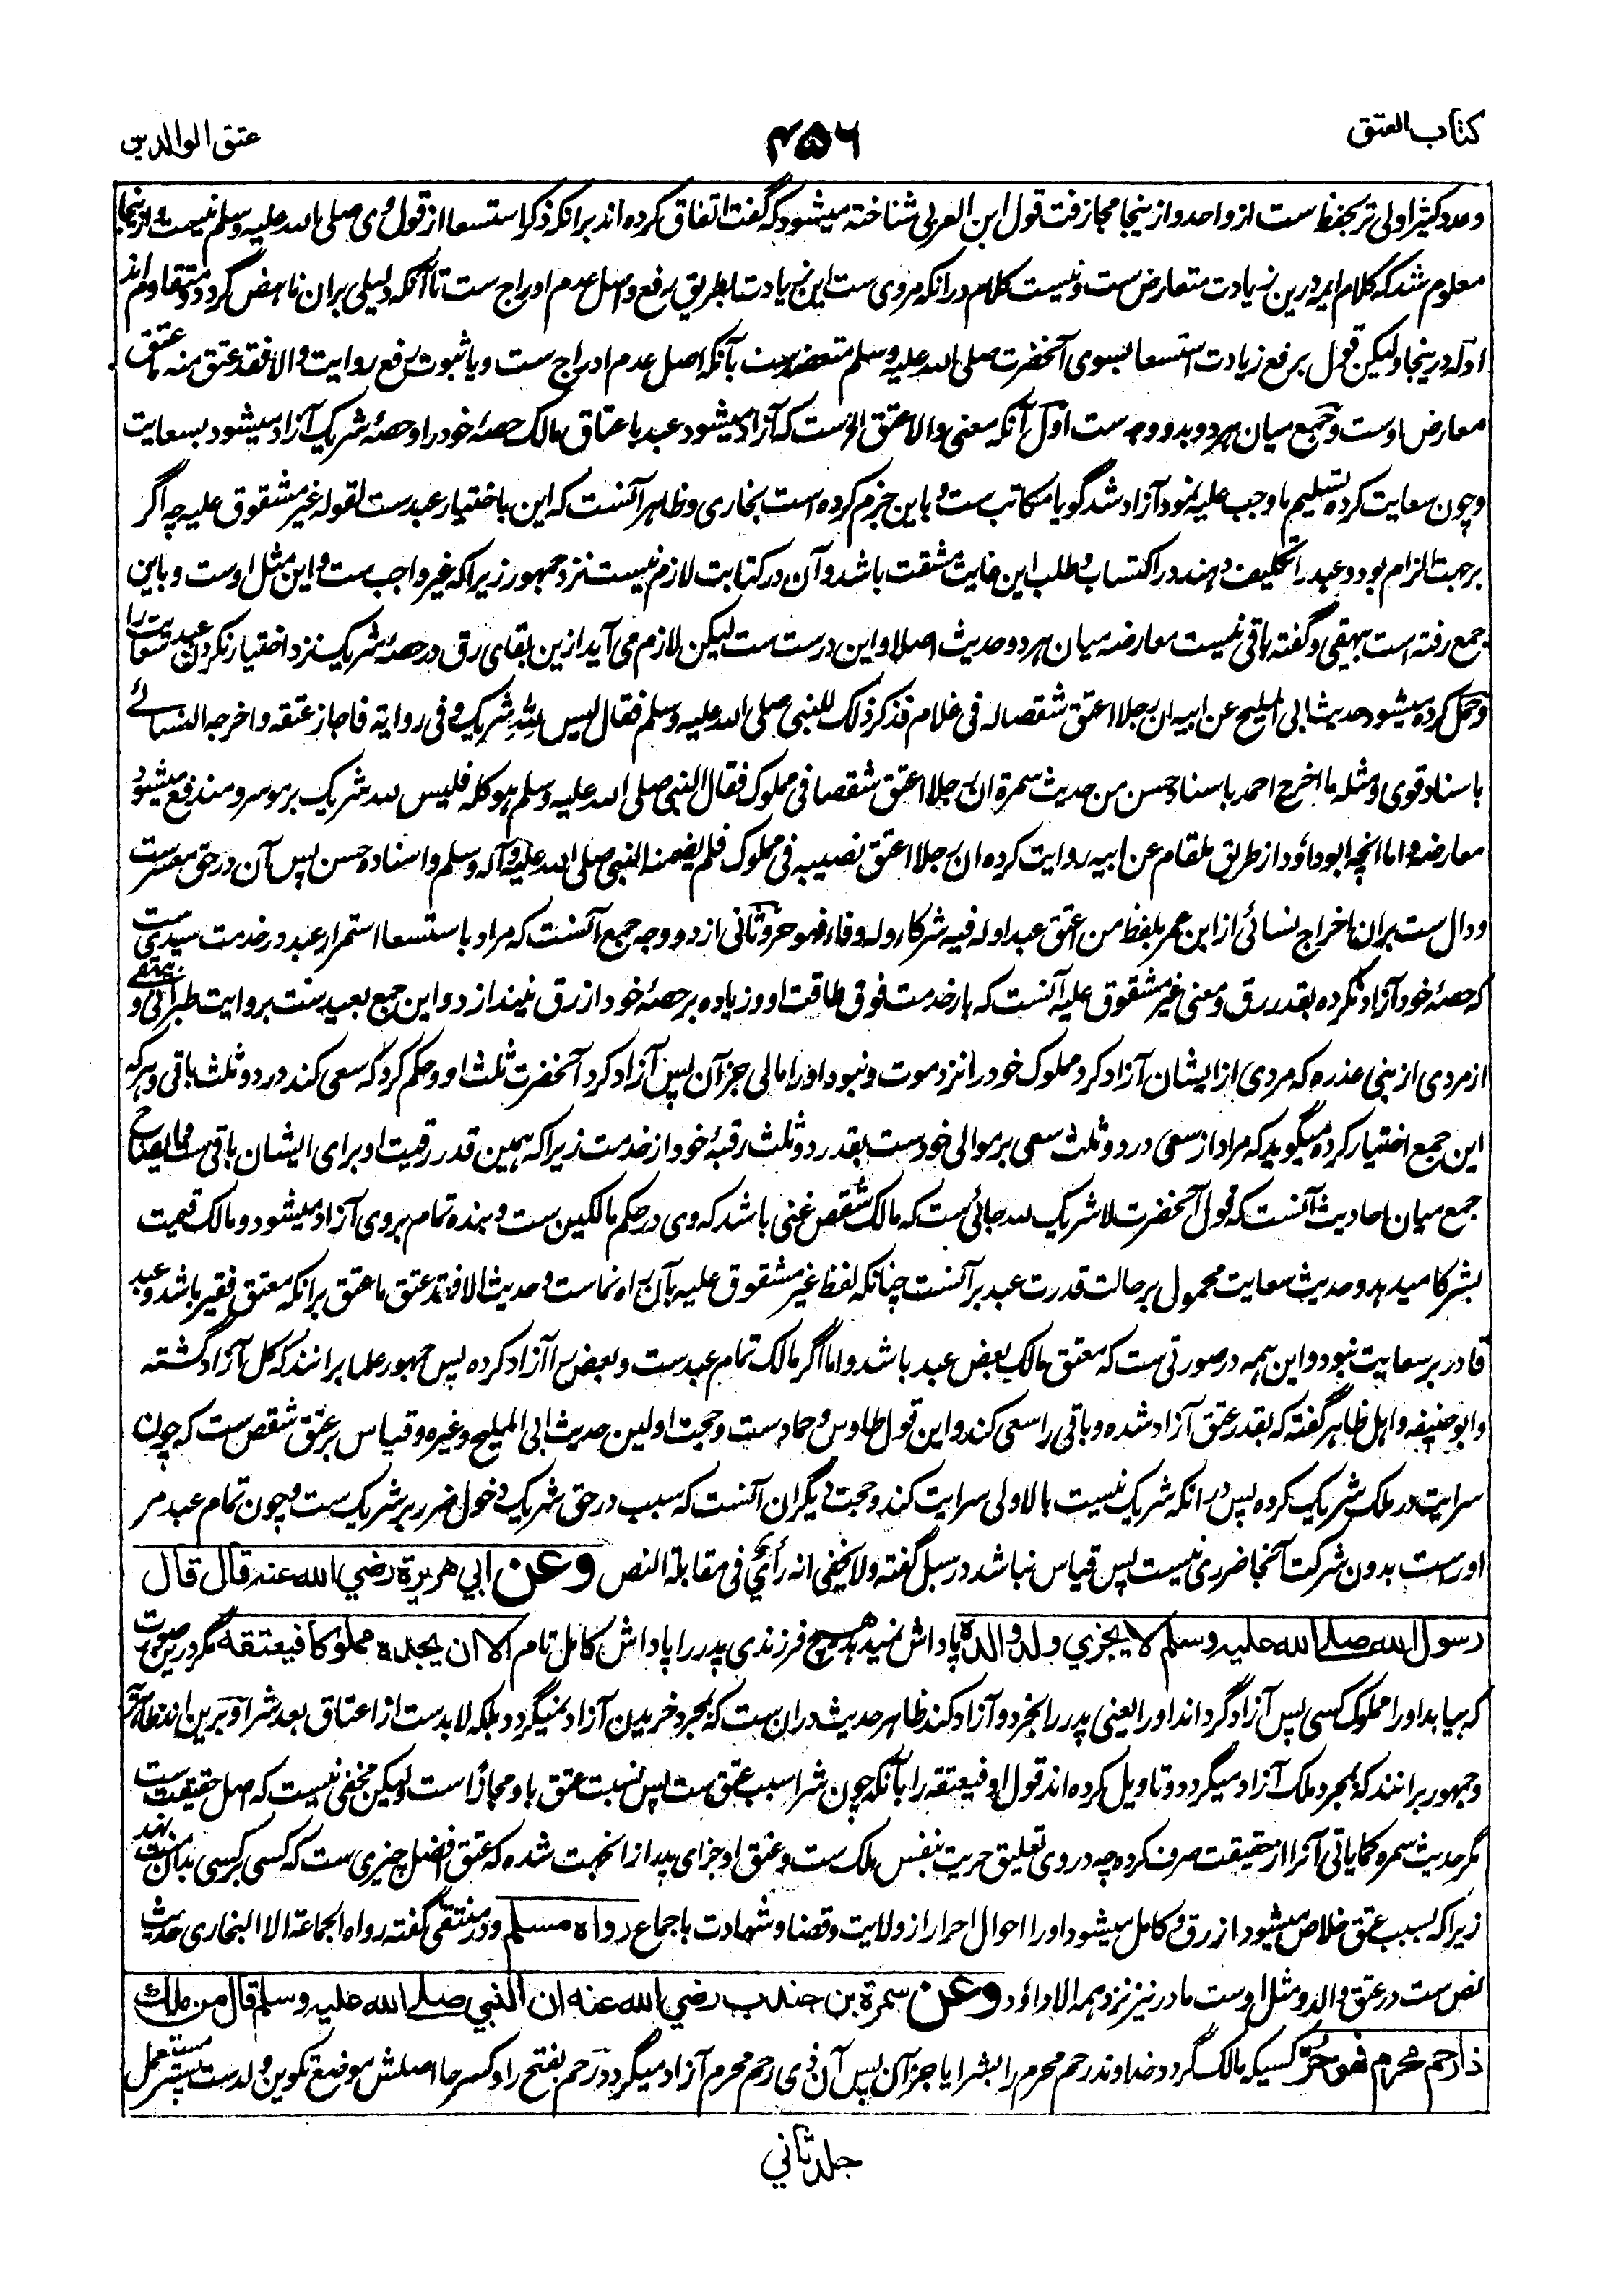 كتاب العتق
۴۵۶
عتق الوالدين
وعدد کثیر اولی تر بحفظ ست از واحد و از ینجا مجازفت قول ابن العربی شناخته میشود که گفت اتفاق کرده اند بر انکه ذکر استسعا از قول وی صلی الله علیه وسلم نیست و از ینجا
معلوم شد که کلام ایمه درین زیادت متعارض ست و نیست کلام در انکه مروی ست این زیادت بطریق رفع و اصل عدم ادراج ست تا آنکه دلیلی بران ناهض گردد و متقاوم اند
ادله در ینجا و لیکن قول برفع زیادت استسعا بسوی آنحضرت صلی الله علیه وسلم متعضد ست بآنکه اصل عدم ادراج ست و با ثبوت رفع روایت و الا فقد عتق منه ما عتق
معارض اوست و جمع میان هر دو بدو وجه ست اول آنکه معنی والا عتق الخ ست که آزاد میشود عبد باعتاق مالک حصهٔ خود را و حصهٔ شریک آزاد میشود بسعایت
و چون سعایت کرده تسلیم ما وجب علیه نمود آزاد شد گویا مکاتب ست و باین جزم کرده است بخاری و ظاهر آنست که این باختیار عبد ست لقوله غیر مشقوق علیه چه اگر
بر جهت الزام بود و عبد را تکلیف دهند در اکتساب و طلب این غایت مشقت باشد و آن در کتابت لازم نیست نزد جمهور زیرا که غیر واجب ست و این مثل اوست و باین
جمع رفته است بیهقی و گفته باقی نیست معارضه میان هر دو حدیث اصلا و این درست ست لیکن لازم می آید ازین بقای رق در حصهٔ شریک نزد اختیار نکردن عبد سعایت را
و حمل کرده میشود حدیث ابی الملیح عن ابیه ان رجلا اعتق شقصا له فی غلام فذکر ذلک للنبی صلی الله علیه وسلم فقال لیس لله شریک و فی روایة فاجاز عتقه و اخرجه النسائے
باسناد قوی و مثله ما اخرج احمد باسناد حسن من حدیث سمرة ان رجلا اعتق شقصا فی مملوک فقال النبی صلی الله علیه وسلم هو کله فلیس لله شریک بر موسر و مندفع میشود
معارضه و اما انچه ابوداؤد از طریق ملقام عن ابیه روایت کرده ان رجلا اعتق نصیبه فی مملوک فلم یضمنه النبی صلی الله علیه وآله وسلم و اسناده حسن پس آن در حق معسر ست
و دال ست بران اخراج نسائی از ابن عمر بلفظ من اعتق عبدا وله فیه شرکاء وله وفاء فهو حر و ثانی از دو وجه جمع آنست که مراد باستسعا استمرار عبد در خدمت سیدی ست
که حصهٔ خود آزاد نکرده بقدر رق و معنی غیر مشقوق علیه آنست که بار خدمت فوق طاقت او و زیاده بر حصهٔ خود از رق نیندازد و این جمع بعید ست بروایت طبرانی و بیهقی
از مردی از بنی عذره که مردی از ایشان آزاد کرد مملوک خود را نزد موت و نبود او را مالی جز آن پس آزاد کرد آنحضرت ثلث او و حکم کرد که سعی کند در دو ثلث باقی و هر که
این جمع اختیار کرده میگوید که مراد از سعی در دو ثلث سعی بر موالی خودست بقدر دو ثلث رقبهٔ خود از خدمت زیرا که همین قدر رقیت او برای ایشان باقی ست و ایضاح
جمع میان احادیث آنست که قول آنحضرت لا شریک لله جائی ست که مالک شقص غنی باشد که وی در حکم مالکین ست و بنده تمام بر وی آزاد میشود و مالک قیمت
بشرکا میدهد و حدیث سعایت محمول بر حالت قدرت عبد بر آنست چنانکه لفظ غیر مشقوق علیه بآن راه نماست و حدیث الا فقد عتق ما عتق بر انکه معتق فقیر باشد و عبد
قادر بر سعایت نبود و این همه در صورتی ست که معتق مالک بعض عبد باشد و اما اگر مالک تمام عبدست و بعض را آزاد کرده پس جمهور علما بر انند که کل آزاد گشته
و ابو حنیفه و اهل ظاهر گفته که بقدر عتق آزاد شده و باقی را سعی کند و این قول طاوس و حماد ست و حجت اولین حدیث ابی الملیح و غیره و قیاس بر عتق شقص ست که چون
سرایت در ملک شریک کرده پس در انکه شریک نیست بالاولی سرایت کند و حجت دیگران آنست که سبب در حق شریک دخول ضرر بر شریک ست و چون تمام عبد مر
اوراست بدون شرکت آنجا ضرری نیست پس قیاس نباشد در سبل گفته ولا یخفی انه رأی فی مقابلة النص وعن ابي هريرة رضي الله عنه قال قال
رسول الله صلے الله عليه وسلم لا يجزي ولد والده پاداش نمیدهد هیچ فرزندی پدر را پاداش کامل تام الا ان يجده مملوكا فيعتقه مگر درین صورت
که بیابد او را مملوک کسی پس آزاد گرداند او را یعنی پدر را بخرد و آزاد کند ظاهر حدیث دران ست که بمجرد خریدن آزاد نمیگردد بلکه لابدست از اعتاق بعد شرا و برین اند ظاهریه
و جمهور بر انند که بمجرد ملک آزاد میگردد و تاویل کرده اند قول او فیعتقه را بآنکه چون شرا سبب عتق ست پس نسبت عتق باو مجازا است و لیکن مخفی نیست که اصل حقیقت ست
مگر حدیث سمره کما یاتی آنرا از حقیقت صرف کرده چه در وی تعلیق حریت بنفس ملک ست و عتق او جزای پدر ازانجهت شده که عتق افضل چیزی ست که کسی بر کسی بدان منت نهد
زیرا که بسبب عتق خلاص میشود از رق و کامل میشود او را احوال احرار از ولایت و قضا و شهادت باجماع رواه مسلم و در منتقی گفته رواه الجماعة الا البخاری حدیث
نص ست در عتق والد و مثل اوست مادر نیز نزد همه الا داؤد وعن سمرة بن جندب رضي الله عنه ان النبي صلے الله عليه وسلم قال من ملك
ذا رحم محرم فهو حر کسیکه مالک گردد خداوند رحم محرم را بشرا یا جز آن پس آن ذی رحم محرم آزاد میگردد رحم بفتح را و کسر حا اصلش موضع تکوین ولد ست پستر مستعمل
جلد ثاني